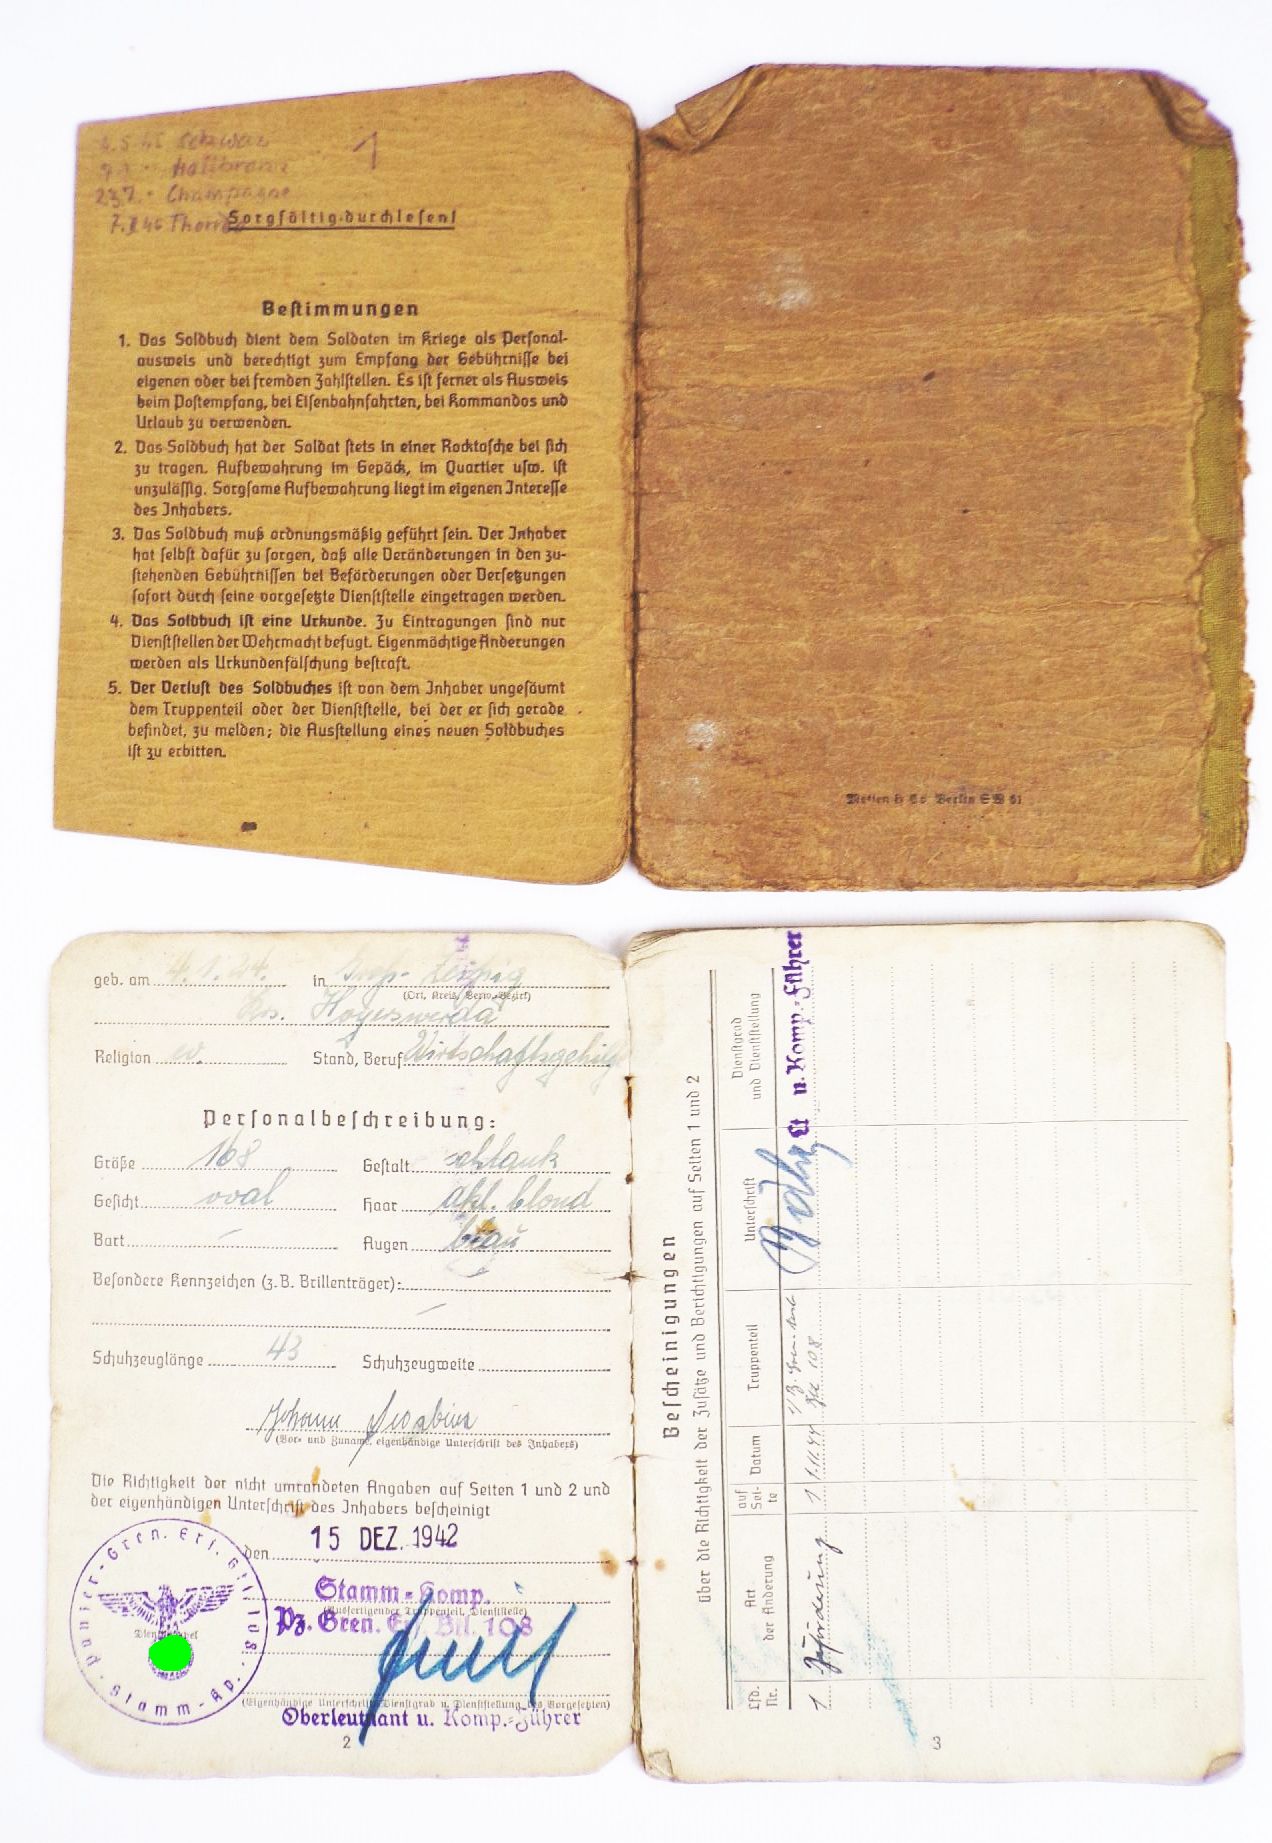 Schwaz
Heilbronn
23.7. " Champagne
Sorgfältig durchlesen!
Bestimmungen
1. Das Soldbuch dient dem Soldaten im Kriege als Personal-
ausweis und berechtigt zum Empfang der Gebührnisse bei
eigenen oder bei fremden Zahlstellen. Es ist ferner als Ausweis
beim Postempfang, bei Eisenbahnfahrten, bei Kommandos und
Urlaub zu verwenden.
2. Das Soldbuch hat der Soldat stets in einer Rocktasche bei sich
zu tragen. Aufbewahrung im Gepäck, im Quartier usw. ist
unzulässig. Sorgsame Aufbewahrung liegt im eigenen Interesse
des Inhabers.
3. Das Soldbuch muß ordnungsmäßig geführt sein. Der Inhaber
hat selbst dafür zu sorgen, daß alle Veränderungen in den zu-
stehenden Gebührnissen bei Beförderungen oder Versetzungen
sofort durch seine vorgesetzte Dienststelle eingetragen werden.
4. Das Soldbuch ist eine Urkunde. Zu Eintragungen sind nur
Dienststellen der Wehrmacht befugt. Eigenmächtige Änderungen
werden als Urkundenfälschung bestraft.
5. Der Verlust des Soldbuches ist von dem Inhaber ungesäumt
dem Truppenteil oder der Dienststelle, bei der er sich gerade
befindet, zu melden; die Ausstellung eines neuen Soldbuches
ist zu erbitten.
Metten & Co Berlin SW 61
geb. am 4.1.24. in Groß-Leipzig
(Ort, Kreis, Verw.-Bezirk)
Krs. Hoyerswerda
Religion ev. Stand, Beruf Wirtschaftsgehilfe
Personalbeschreibung:
Größe 168 Gestalt schlank
Gesicht oval Haar dkl. blond
Bart - Augen blau
Besondere Kennzeichen (z.B. Brillenträger):
-
Schuhzeuglänge 43 Schuhzeugweite
Johann
(Vor- und Zuname, eigenhändige Unterschrift des Inhabers)
Die Richtigkeit der nicht umrandeten Angaben auf Seiten 1 und 2 und
der eigenhändigen Unterschrift des Inhabers bescheinigt
den 15 DEZ. 1942
Stamm-Komp.
(Ausfertigender Truppenteil, Dienststelle)
Pz. Gren. Ers. Btl. 108
Panzer-Gren. Ers. Btl. 108
Stamm-Kp.
Dienststempel
(Eigenhändige Unterschrift, Dienstgrad u. Dienststellung des Vorgesetzten)
Oberleutnant u. Komp.-Führer
2
Bescheinigungen
über die Richtigkeit der Zusätze und Berichtigungen auf Seiten 1 und 2
Lfd. Nr.
Art der Änderung
auf Sei-te
Datum
Truppenteil
Unterschrift
Dienstgrad und Dienststellung
1 Beförderung 1 1.11.44 108 Lt u. Komp.-Führer
3